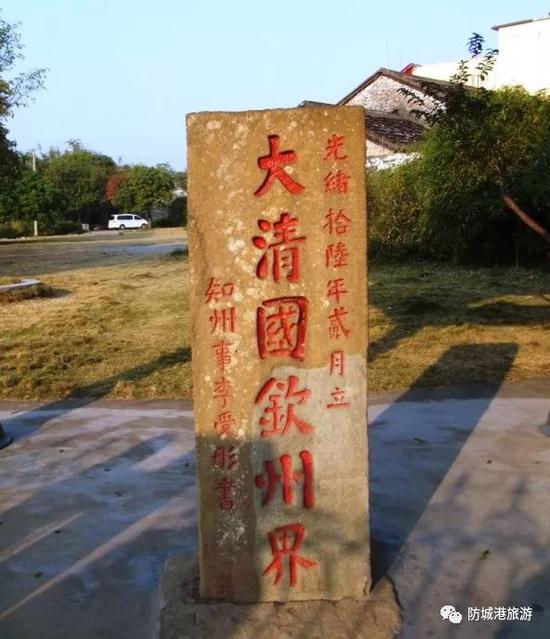 光緒拾陸年貳月立
大清國欽州界
知州事李受彤書
防城港旅游